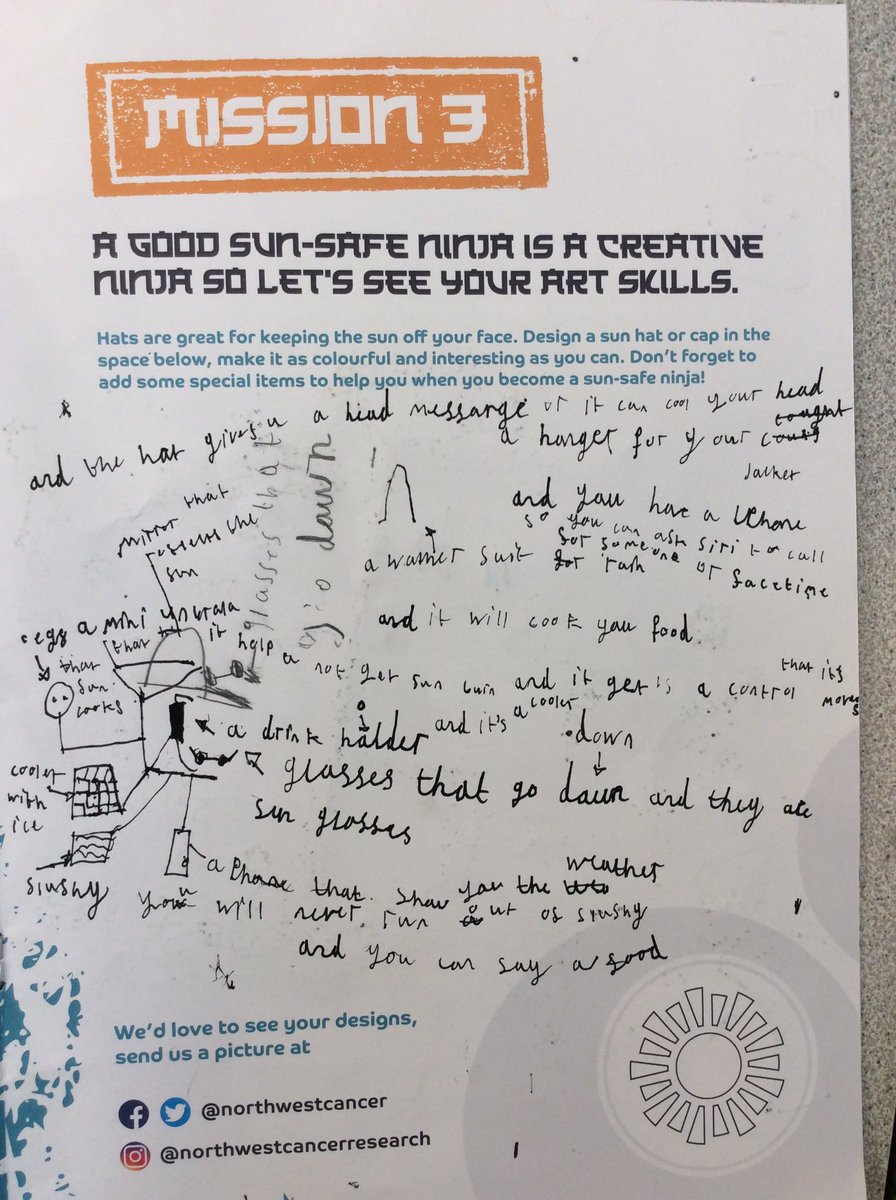 MISSION 3
A GOOD SUN-SAFE NINJA IS A CREATIVE
NINJA SO LET'S SEE YOUR ART SKILLS.
Hats are great for keeping the sun off your face. Design a sun hat or cap in the
space below, make it as colourful and interesting as you can. Don't forget to
add some special items to help you when you become a sun-safe ninja!
and the hat gives u a head messarge or it can cool your head
a hanger for your
Jacket
glasses that
go dawn
mirror that
the
sun
and you have a Phone
so you can ask siri to call
for someone or facetime
a suit
and it will cook you food.
egg
that
sun
cooks
a mini
that it help a
not get sun burn and it get is a control that it's
moves
a drink hálder and it's a cooler
down
glasses that go dawn and they are
sun glasses
cooler
with
ice
slushy
a Phone that. Show you the weather
you will never run out of slushy
and you can say a good
We'd love to see your designs,
send us a picture at
@northwestcancer
@northwestcancerresearch